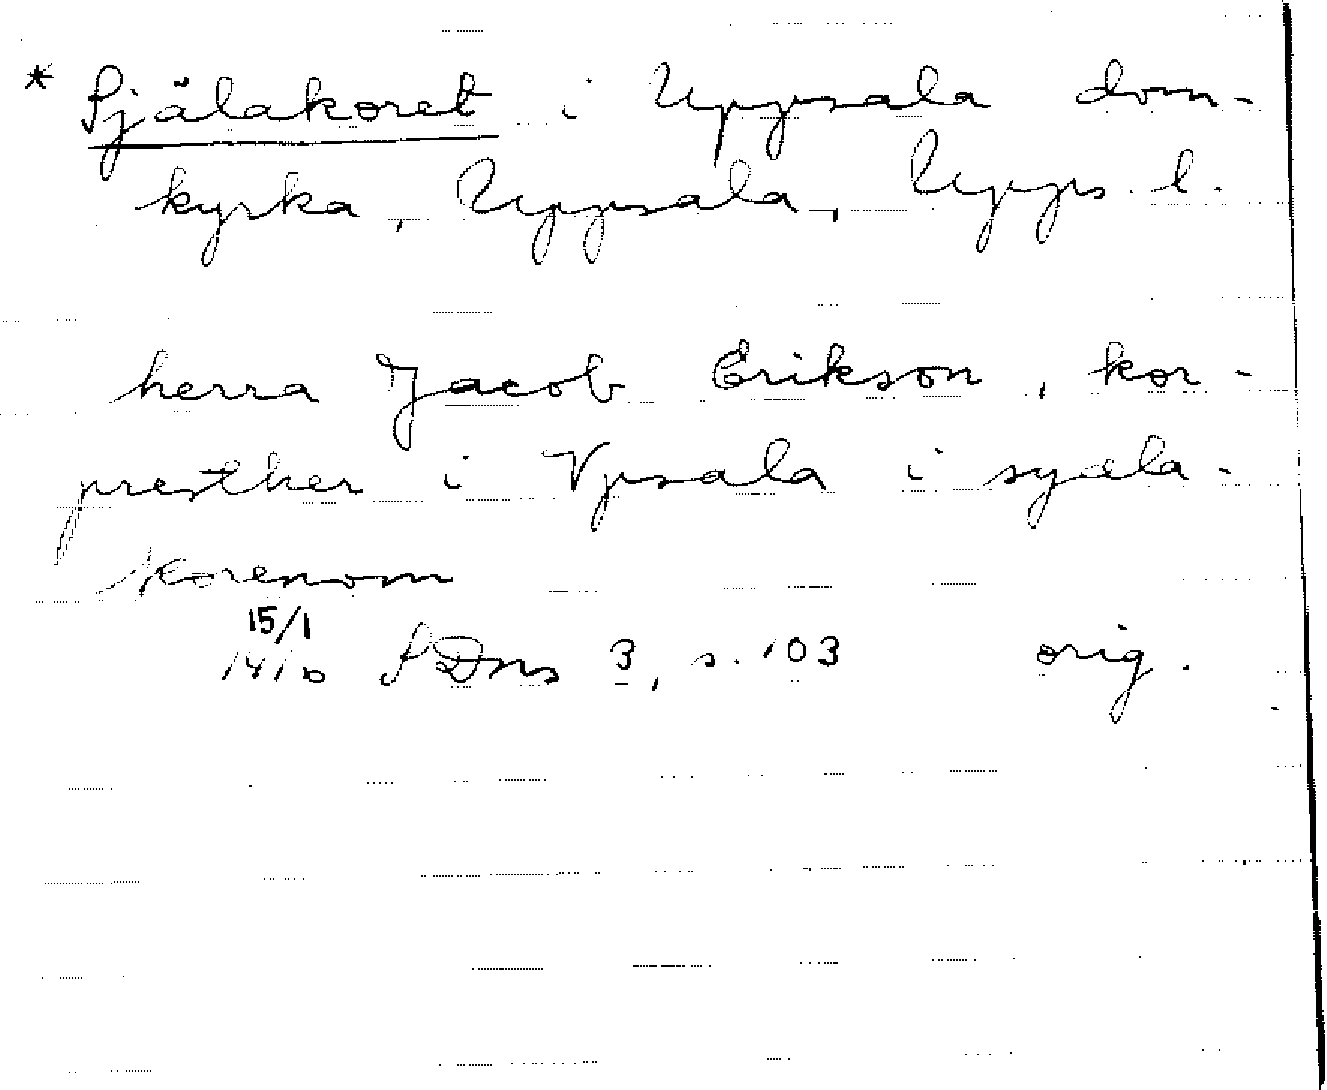 * Själakoret i Uppsala dom-
kyrka, Uppsala, Upps. l.
herra Jacob Erikson, kor-
presther i Vpsala i syæla-
korenom
15/1
1410 SDns 3, s. 103 orig.